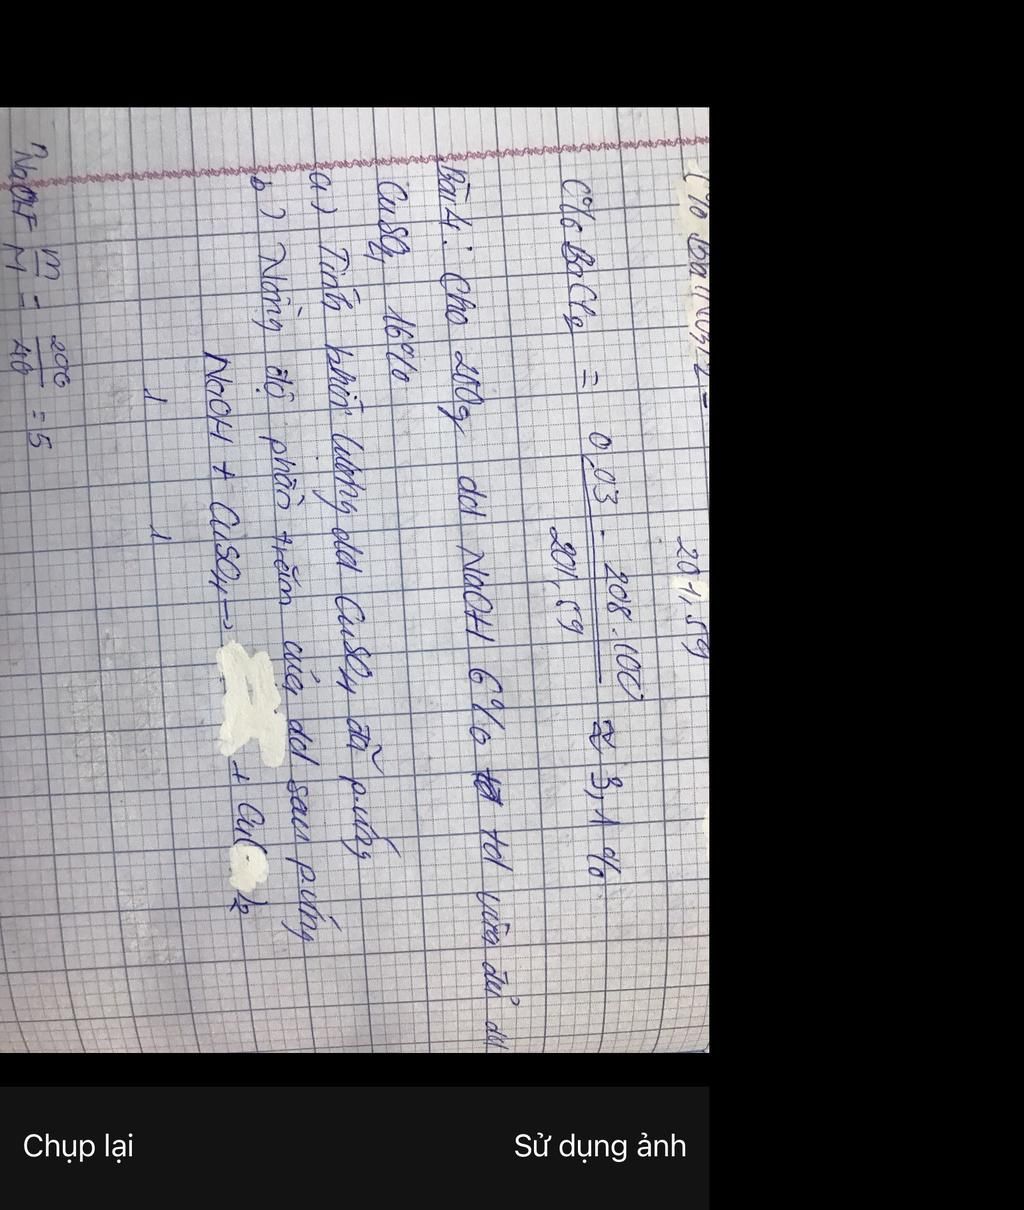 C% Ba(NO3)2 =
201,59
C% BaCl2 = 0,03 . 208 . 100 / 201,59 ≈ 3,1 %
Bài 4: Cho 200g dd NaOH 6% td vừa đủ dd
CuSO4 16%
a) Tính khối lượng dd CuSO4 đã p.ứng
b) Nồng độ phần trăm của dd sau p.ứng
NaOH + CuSO4 → + Cu( )2
1 1
nNaOH = m/M = 200/40 = 5
Chụp lại
Sử dụng ảnh